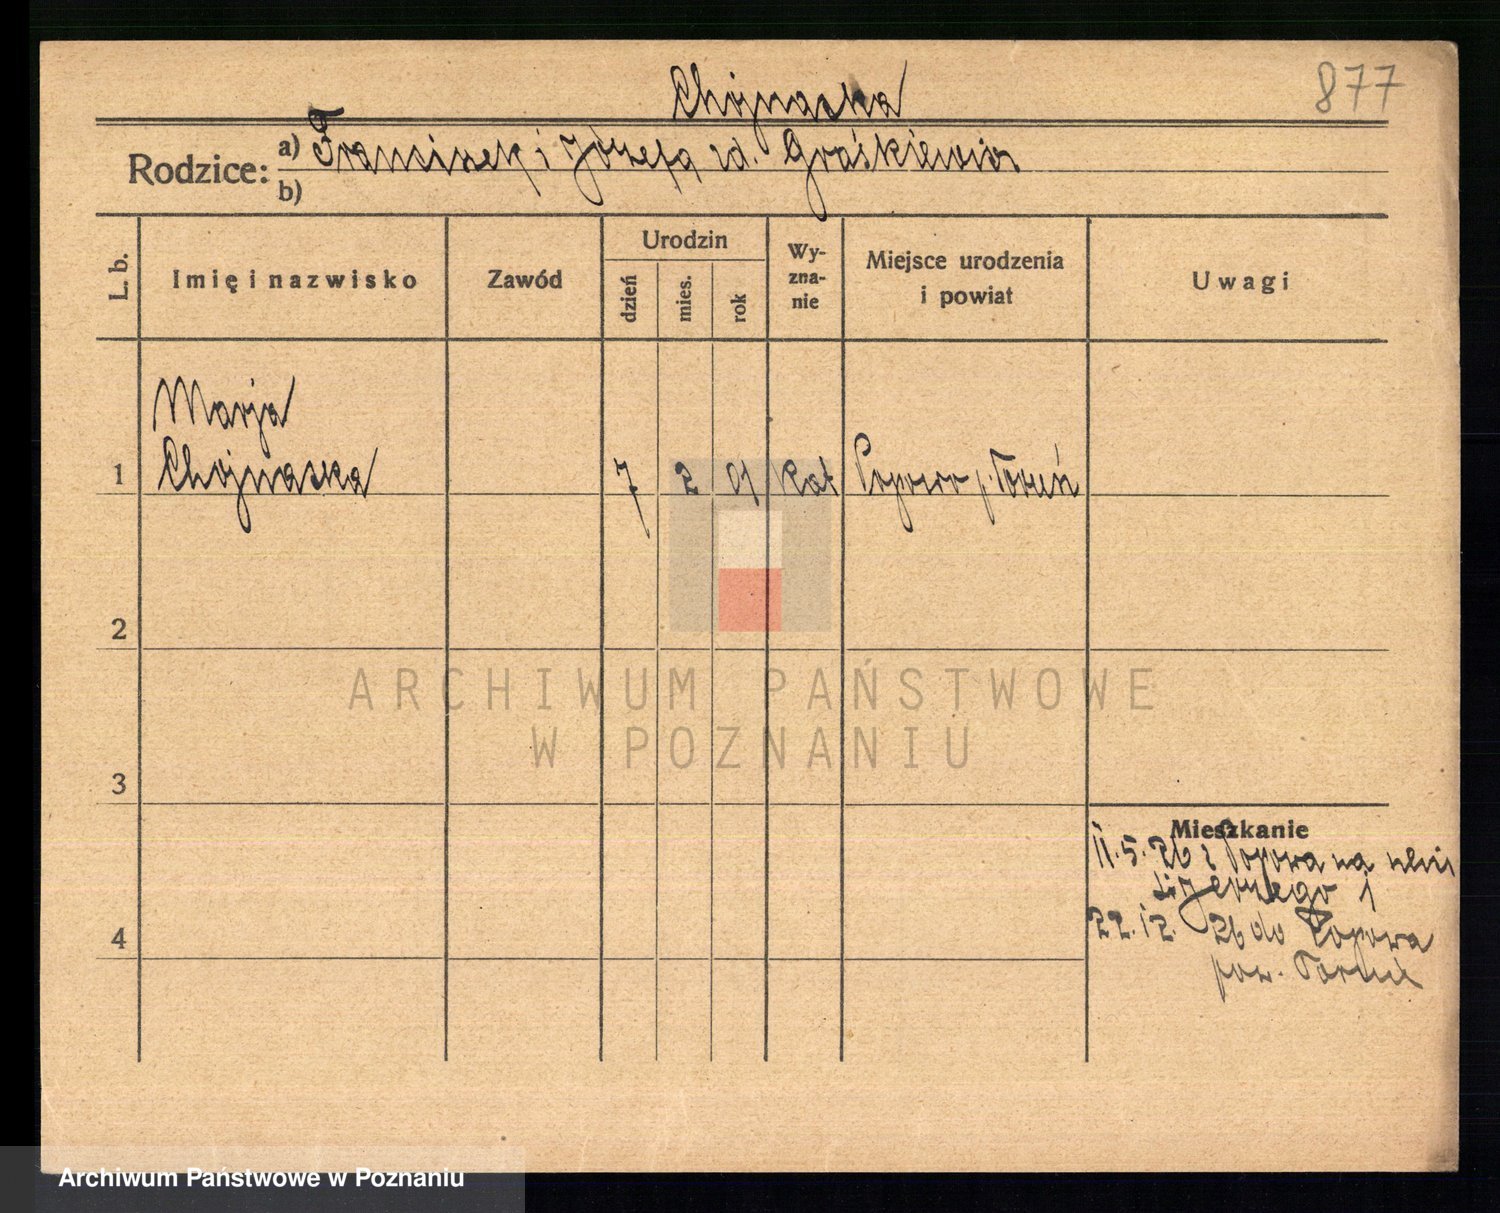 877
Chojnacka
Rodzice: a) Franciszek i Józefa zd. Graśkiewicz
b)
L. b.
Imię i nazwisko
Zawód
Urodzin
dzień
mies.
rok
Wy-
zna-
nie
Miejsce urodzenia
i powiat
Uwagi
Marja
1 Chojnacka 7 2 01 Kat Popowo p. Toruń
2
3
4
ARCHIWUM PAŃSTWOWE
W POZNANIU
Mieszkanie
11.5.26 z Popowa na
i
22.12. 26 do Popowa
pow. Toruń
Archiwum Państwowe w Poznaniu